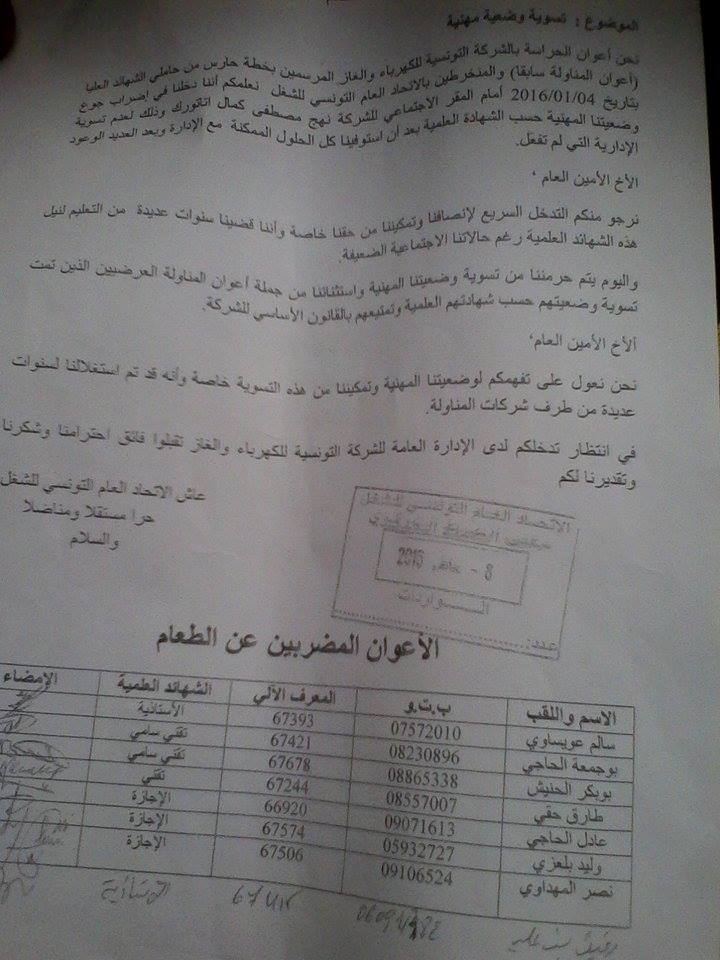 الموضوع : تسوية وضعية مهنية
نحن أعوان الحراسة بالشركة التونسية للكهرباء والغاز المرسمين بخطة حارس من حاملي الشهائد العليا
(أعوان المناولة سابقا) والمنخرطين بالاتحاد العام التونسي للشغل نعلمكم أننا دخلنا في إضراب جوع
بتاريخ 2016/01/04 أمام المقر الاجتماعي للشركة نهج مصطفى كمال اتاتورك وذلك لعدم تسوية
وضعيتنا المهنية حسب الشهادة العلمية بعد أن استوفينا كل الحلول الممكنة مع الإدارة وبعد العديد الوعود
الإدارية التي لم تفعّل.
الأخ الأمين العام ،
نرجو منكم التدخل السريع لإنصافنا وتمكيننا من حقنا خاصة وأننا قضينا سنوات عديدة من التعليم لنيل
هذه الشهائد العلمية رغم حالاتنا الاجتماعية الضعيفة.
واليوم يتم حرمننا من تسوية وضعيتنا المهنية واستثنائنا من جملة أعوان المناولة العرضيين الذين تمت
تسوية وضعيتهم حسب شهادتهم العلمية وتمتيعهم بالقانون الأساسي للشركة.
ألأخ الأمين العام،
نحن نعول على تفهمكم لوضعيتنا المهنية وتمكيننا من هذه التسوية خاصة وأنه قد تم استغلالنا لسنوات
عديدة من طرف شركات المناولة.
في انتظار تدخلكم لدى الإدارة العامة للشركة التونسية للكهرباء والغاز تقبلوا فائق احترامنا وشكرنا
وتقديرنا لكم
عاش الاتحاد العام التونسي للشغل
حرا مستقلا ومناضلا
والسلام
الاتحاد العام التونسي للشغل
8 - جانفي 2016
الـــواردات
عدد:
الأعوان المضربين عن الطعام
الاسم واللقب ب.ت.و المعرف الآلي الشهائد العلمية الإمضاء
سالم عويساوي 07572010 67393 الأستاذية
بوجمعة الحاجي 08230896 67421 تقني سامي
بوبكر الحنيش 08865338 67678 تقني سامي
طارق حقي 08557007 67244 تقني
عادل الحاجي 09071613 66920 الإجازة
وليد بلعزي 05932727 67574 الإجازة
نصر المهداوي 09106524 67506 الإجازة